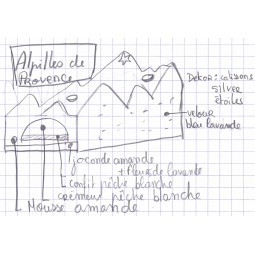 Alpilles de
Provence
Dekor: calissons
silver
étoiles
velour
bleu lavande
joconde amande
+ fleurs de lavande
confit pêche blanche
crémeux pêche blanche
Mousse amande